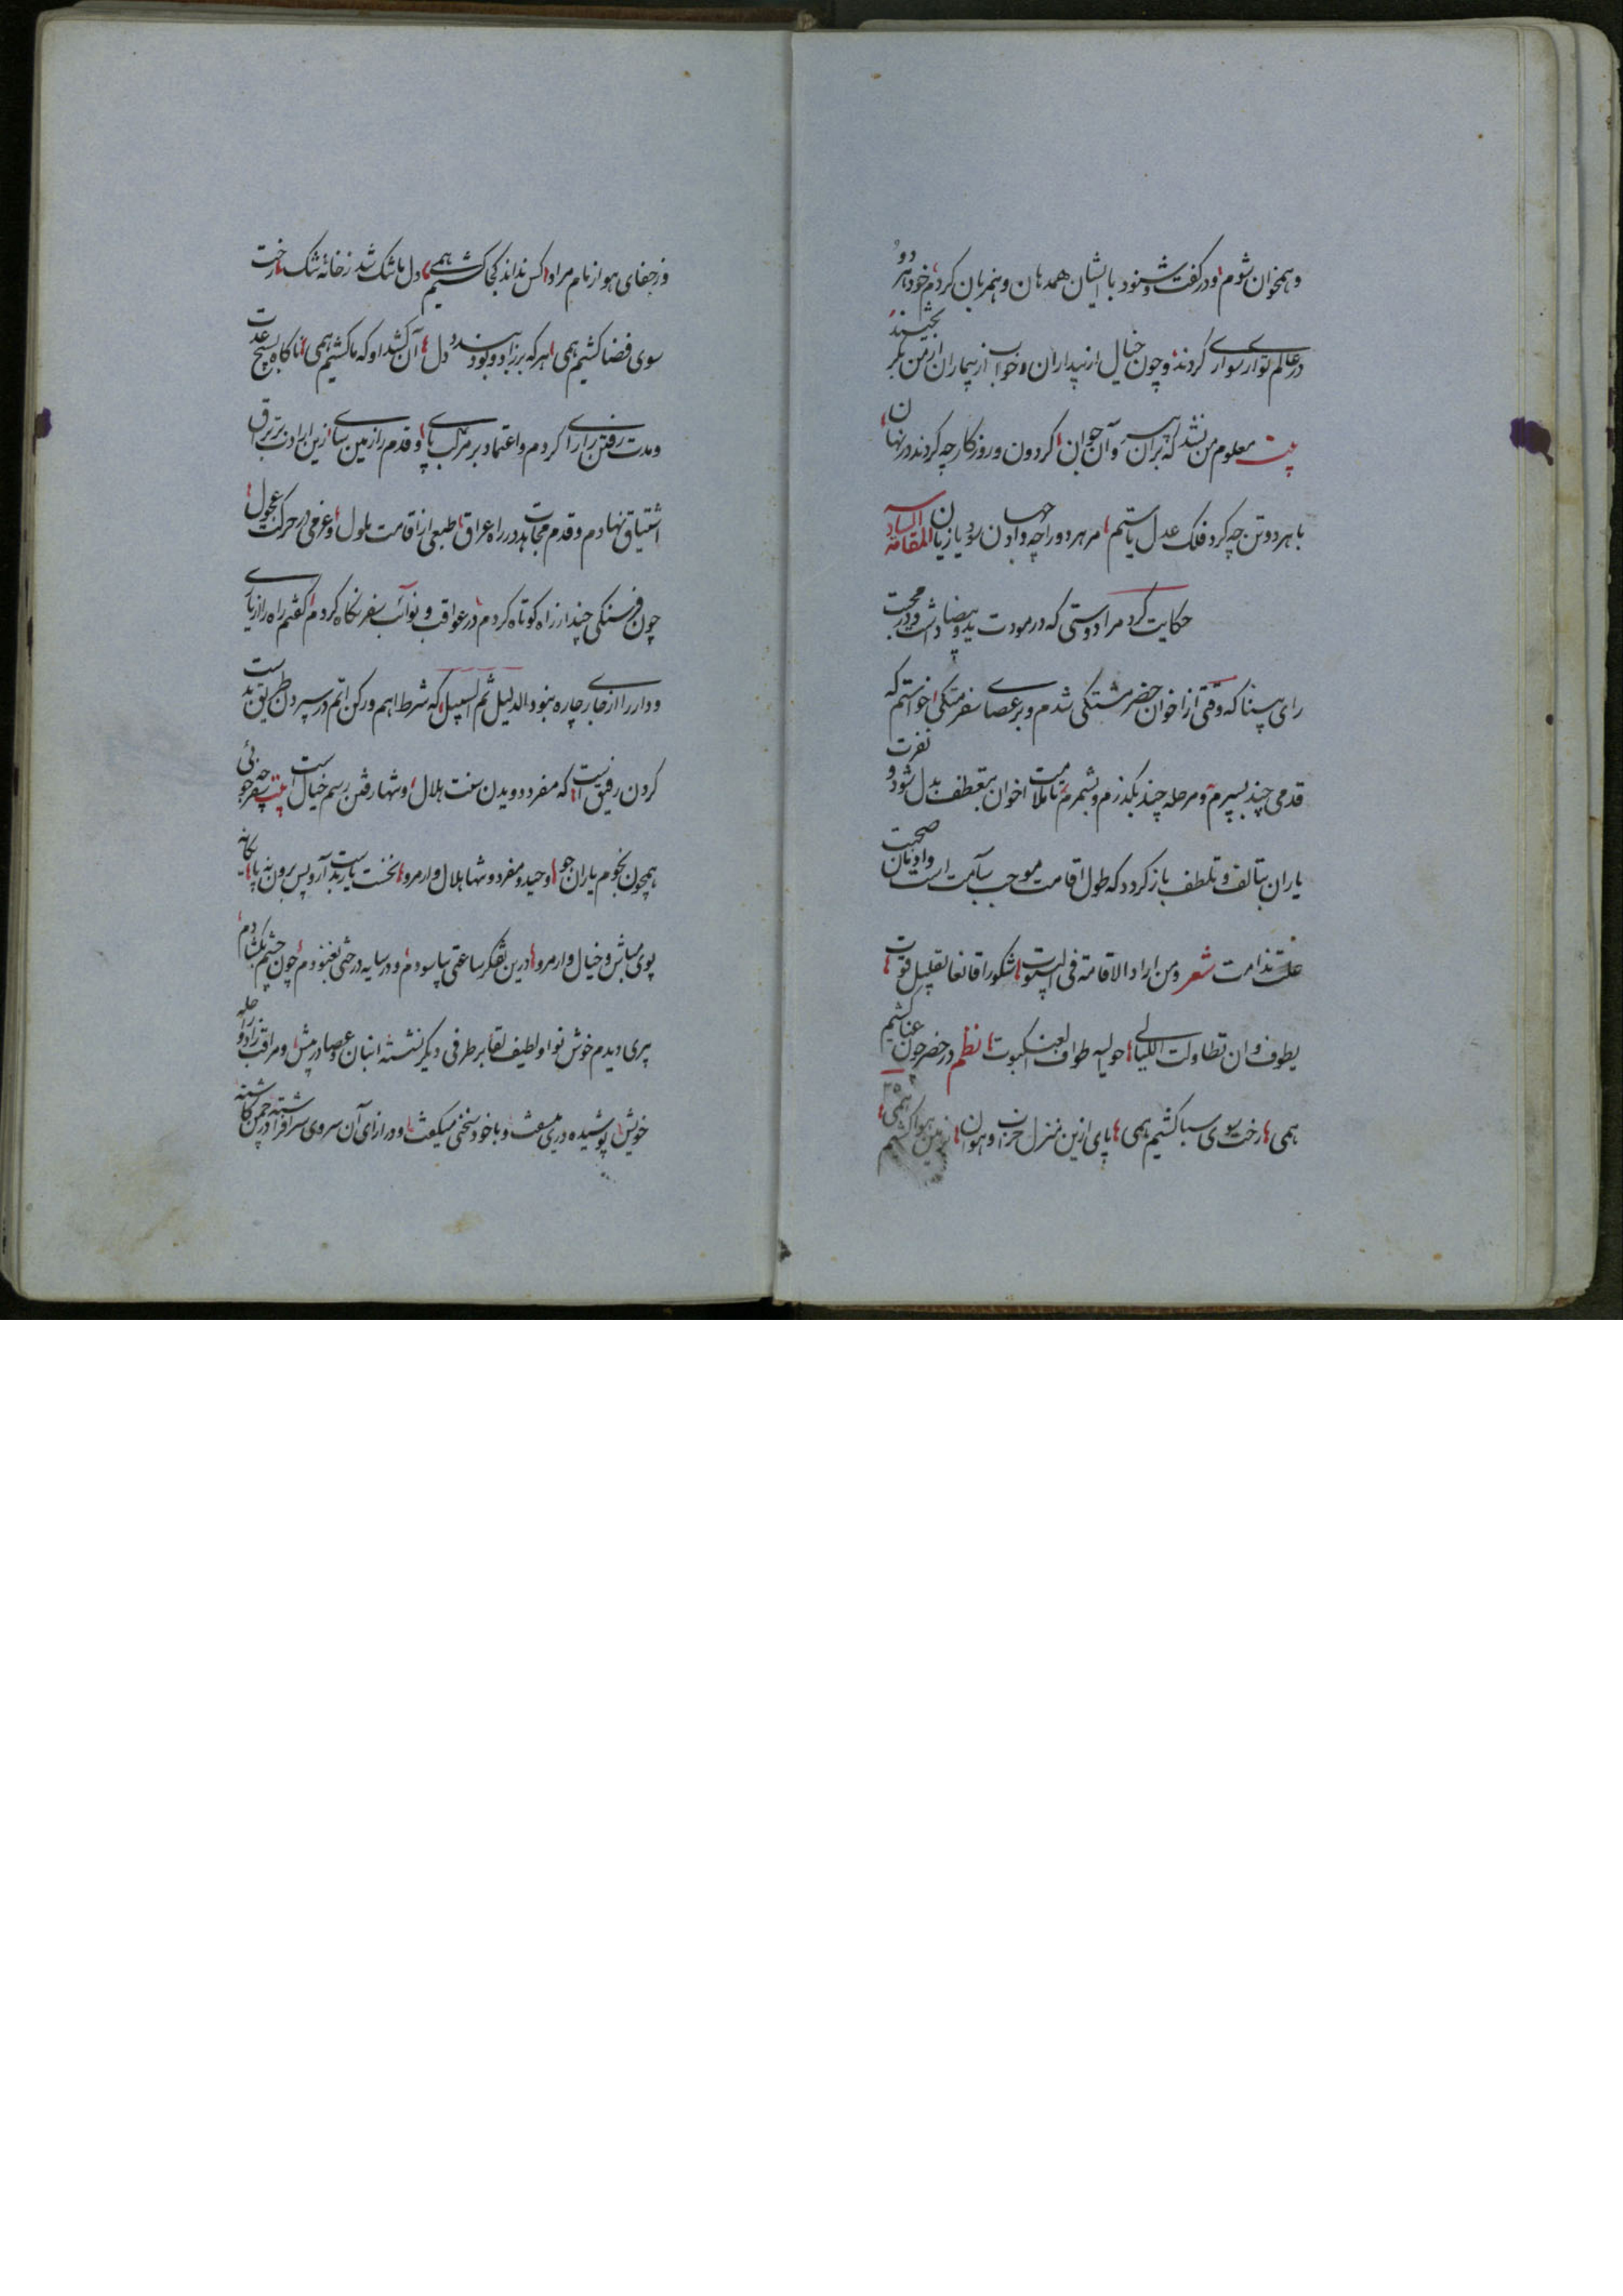 و همخوان شوم و در گفت و شنود با ایشان همدمان و همزبان گردم خود هر دو
در عالم تواری سواری گردند و چون خیال از بیداران و خواب از بیماران از من بگریختند
بیت معلوم من نشد که بران پیر و آن جوان گردون و روزگار چه کردند در نهان
با هر دو تن چه کرد فلک عدل یا ستم مر هر دو را چه داد جهان سود یا زیان المقامة السادسة
حکایت کرد مرا دوستی که در مودت ید بیضا داشت و در محبت
رای بینا که وقتی از اخوان حضر مشتکی شدم و بر عصای سفر متکی خواستم که
قدمی چند بسپرم و مرحله چند بگذرم و بشمرم تا ملامت اخوان بتعطف بدل شود و نفرت
یاران بتالف و تلطف باز گردد که طول اقامت موجب سآمت است و ادمان صحبت
علت ندامت شعر و من اراد الاقامة فی البیوت شکورا قانعا بقلیل قوت
یطوف و ان تطاولت اللیالی حولیه طواف العنکبوت نظم در حضر چون عنا کشیم
همی رخت سوی سبا کشیم همی پای ازین منزل خراب و هوان زمین هوا کشیم همی
وز جفای هوا ز بام مراد کس نداند کجا کشیم همی دل ما تنگ شد ز خانه تنگ رخت
سوی فضا کشیم همی هر که برزاد و بود بندد دل آن کشد او که ما کشیم همی ناگاه بسیج عدت
و مدت رفتن را رای کردم و اعتماد بر مرکب پای و قدم را زمین سای ازین ارادت بر براق
اشتیاق نهادم و قدم مجاهدت در راه عراق طبعی از اقامت ملول و عزمی در حرکت عجول
چون فرسنگی چند از راه کوتاه کردم در عواقب و نوائب سفر نگاه کردم گفتم راه را از یاری
و دار را از جار چاره نبود الدلیل ثم السبیل که شرط اهم و رکن اتم در سپردن طریق بدست
کردن رفیق است که مفرد دویدن سنت هلال و تنها رفتن رسم خیال است بیت سفر چه جوئی
همچون نجوم یاران جو وحید و مفرد و تنها هلال وار مرو نخست یار بدست آر و پس برون نه پا یگانه
پوی مباش و خیال وار مرو درین تفکر ساعتی بیاسودم و در سایه درختی بغنودم چون چشم بگشادم
پیری دیدم خوش نوا و لطیف لقا بر طرفی دیگر نشسته انبان و عصا در پیش و مراقب زاد و راحله
خویش پوشیده دری می‌سفت و با خود سخنی میگفت و در ازای آن سروی سرافراشته در چمن کاشته